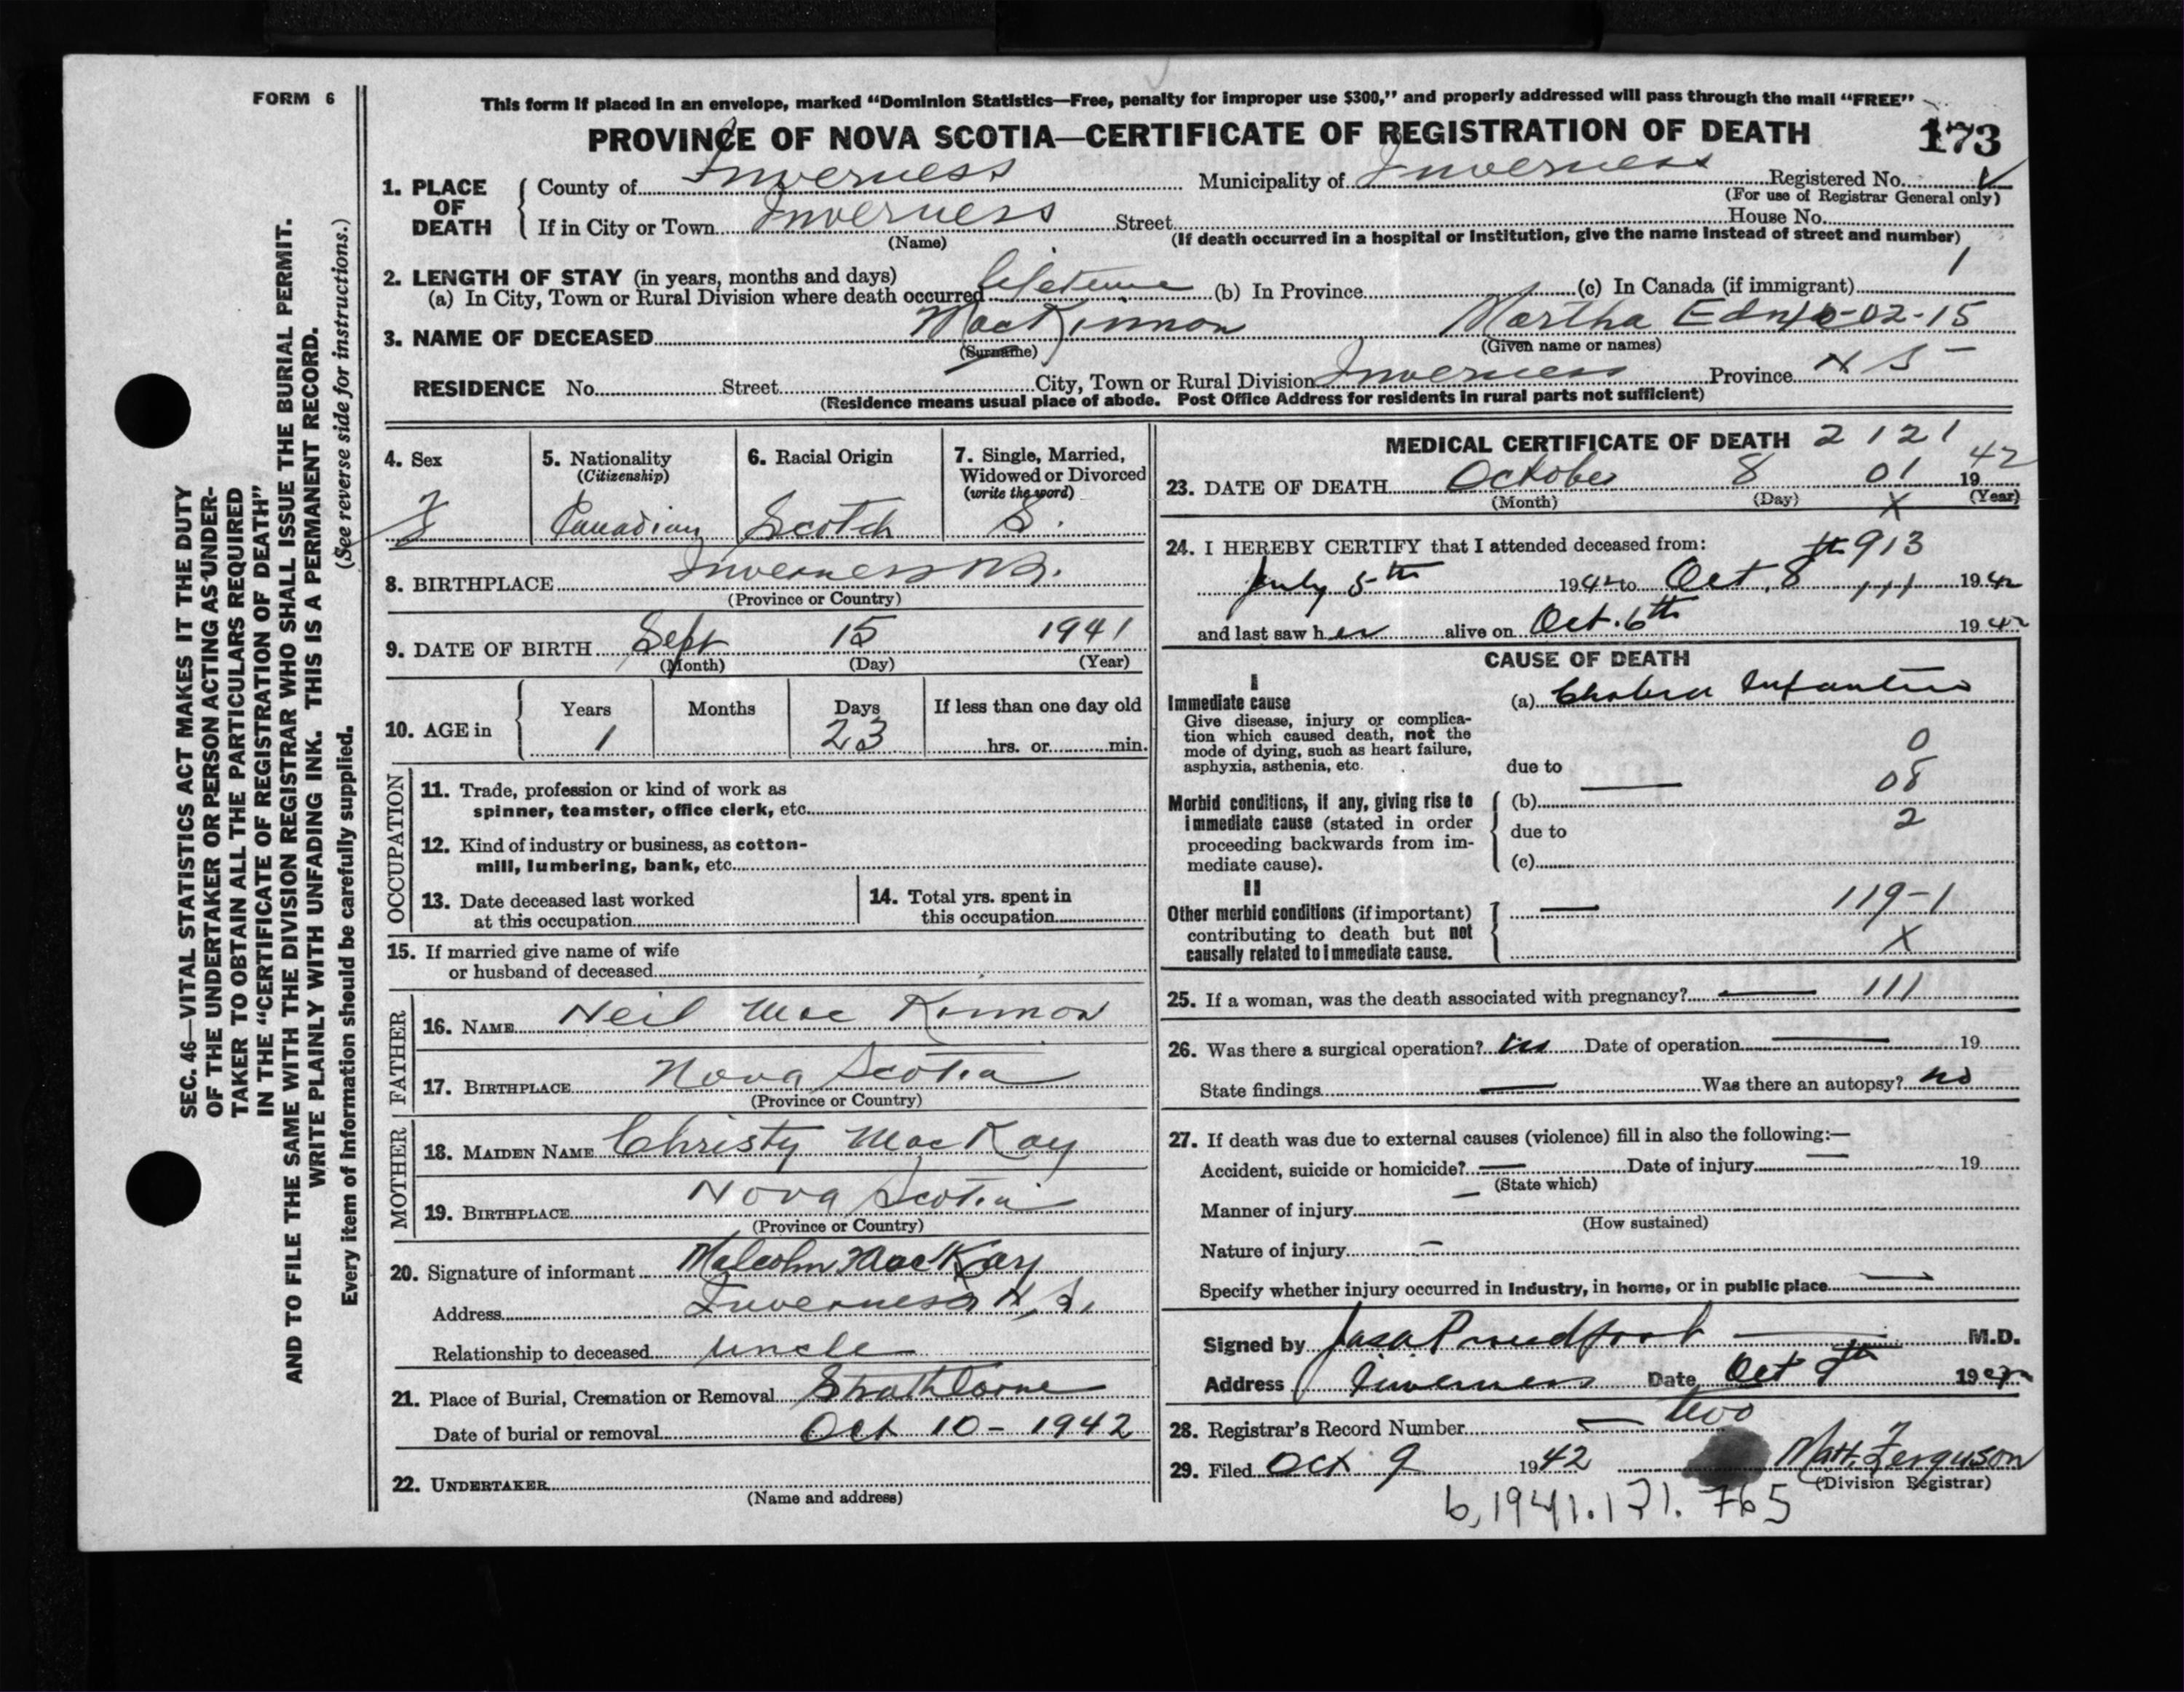 FORM 6
This form if placed in an envelope, marked “Dominion Statistics—Free, penalty for improper use $300,” and properly addressed will pass through the mail “FREE”
PROVINCE OF NOVA SCOTIA—CERTIFICATE OF REGISTRATION OF DEATH 173
1. PLACE OF DEATH
County of Inverness Municipality of Inverness Registered No.
(For use of Registrar General only)
If in City or Town Inverness Street House No.
(Name) (If death occurred in a hospital or institution, give the name instead of street and number)
1
2. LENGTH OF STAY (in years, months and days)
(a) In City, Town or Rural Division where death occurred lifetime (b) In Province (c) In Canada (if immigrant)
3. NAME OF DECEASED MacKinnon Martha -02-15
(Surname) (Given name or names)
RESIDENCE No. Street City, Town or Rural Division Inverness Province N S
(Residence means usual place of abode. Post Office Address for residents in rural parts not sufficient)
4. Sex
F
5. Nationality
(Citizenship)
Canadian
6. Racial Origin
Scotch
7. Single, Married,
Widowed or Divorced
(write the word)
S.
8. BIRTHPLACE Inverness N.S.
(Province or Country)
9. DATE OF BIRTH Sept 15 1941
(Month) (Day) (Year)
10. AGE in
Years Months Days If less than one day old
1 23 hrs. or min.
OCCUPATION
11. Trade, profession or kind of work as
spinner, teamster, office clerk, etc.
12. Kind of industry or business, as cotton-
mill, lumbering, bank, etc.
13. Date deceased last worked
at this occupation
14. Total yrs. spent in
this occupation
15. If married give name of wife
or husband of deceased
FATHER
16. NAME Neil Mac Kinnon
17. BIRTHPLACE Nova Scotia
(Province or Country)
MOTHER
18. MAIDEN NAME Christy MacKay
19. BIRTHPLACE Nova Scotia
(Province or Country)
20. Signature of informant Malcolm MacKay
Address Inverness N.S.
Relationship to deceased uncle
21. Place of Burial, Cremation or Removal Strathlorne
Date of burial or removal Oct 10 - 1942
22. UNDERTAKER
(Name and address)
MEDICAL CERTIFICATE OF DEATH 2 121
23. DATE OF DEATH October 8 01 19 42
(Month) (Day) X (Year)
24. I HEREBY CERTIFY that I attended deceased from: 913
July 5th 1942 to Oct. 8 111 1942
and last saw her alive on Oct. 6th 1942
CAUSE OF DEATH
I
Immediate cause
Give disease, injury or complica-
tion which caused death, not the
mode of dying, such as heart failure,
asphyxia, asthenia, etc.
(a) Cholera Infantum
0
due to
08
Morbid conditions, if any, giving rise to
immediate cause (stated in order
proceeding backwards from im-
mediate cause).
(b) —
due to 2
(c)
II
Other morbid conditions (if important)
contributing to death but not
causally related to immediate cause.
— 119-1
X
25. If a woman, was the death associated with pregnancy? — 111
26. Was there a surgical operation? Date of operation — 19
State findings — Was there an autopsy? no
27. If death was due to external causes (violence) fill in also the following:—
Accident, suicide or homicide? — Date of injury — 19
(State which)
Manner of injury —
(How sustained)
Nature of injury —
Specify whether injury occurred in Industry, in home, or in public place —
Signed by Jas. A. Proudfoot M.D.
Address Inverness Date Oct 9th 1942
28. Registrar's Record Number two
29. Filed Oct 9 1942 Matt. Ferguson
(Division Registrar)
b, 1941. 121. 765
SEC. 46—VITAL STATISTICS ACT MAKES IT THE DUTY
OF THE UNDERTAKER OR PERSON ACTING AS UNDER-
TAKER TO OBTAIN ALL THE PARTICULARS REQUIRED
IN THE “CERTIFICATE OF REGISTRATION OF DEATH”
AND TO FILE THE SAME WITH THE DIVISION REGISTRAR WHO SHALL ISSUE THE BURIAL PERMIT.
WRITE PLAINLY WITH UNFADING INK. THIS IS A PERMANENT RECORD.
Every item of information should be carefully supplied. (See reverse side for instructions.)